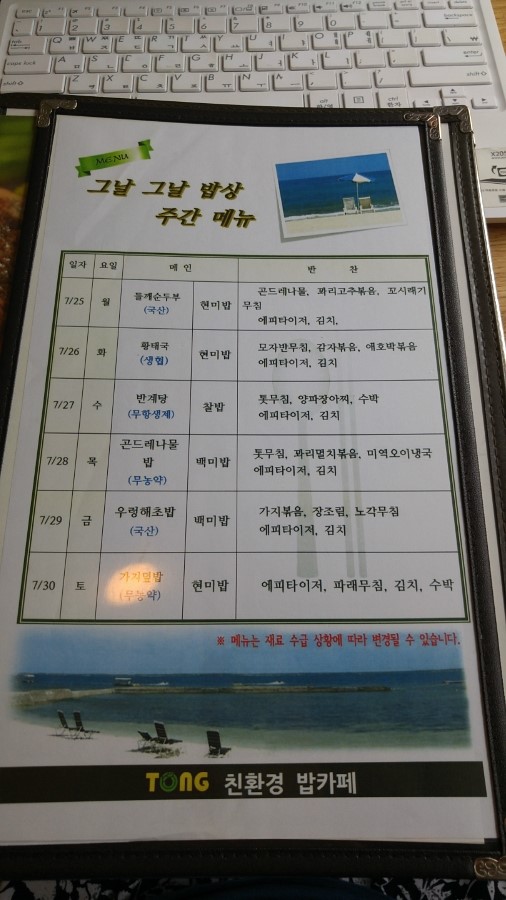 MENU
그날 그날 밥상
주간 메뉴
일자 요일 메인 반찬
7/25 월 들깨순두부 (국산) 현미밥 곤드레나물, 꽈리고추볶음, 꼬시래기
무침
에피타이저, 김치,
7/26 화 황태국 (생협) 현미밥 모자반무침, 감자볶음, 애호박볶음
에피타이저, 김치
7/27 수 반계탕 (무항생제) 찰밥 톳무침, 양파장아찌, 수박
에피타이저, 김치
7/28 목 곤드레나물밥 (무농약) 백미밥 톳무침, 꽈리멸치볶음, 미역오이냉국
에피타이저, 김치
7/29 금 우렁해초밥 (국산) 백미밥 가지볶음, 장조림, 노각무침
에피타이저, 김치
7/30 토 가지덮밥 (무농약) 현미밥 에피타이저, 파래무침, 김치, 수박
※ 메뉴는 재료 수급 상황에 따라 변경될 수 있습니다.
TONG 친환경 밥카페